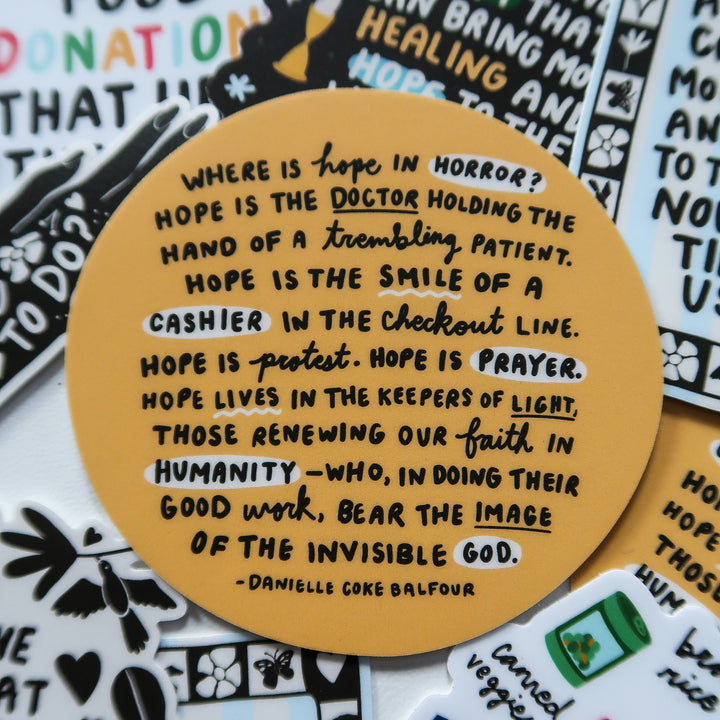 FOOD
DONATION
THAT
CAN BRING MO
HEALING AND
HOPE TO THE
TO DO?
WHERE IS hope IN HORROR?
HOPE IS THE DOCTOR HOLDING THE
HAND OF A trembling PATIENT.
HOPE IS THE SMILE OF A
CASHIER IN THE checkout LINE.
HOPE IS protest. HOPE IS PRAYER.
HOPE LIVES IN THE KEEPERS OF LIGHT,
THOSE RENEWING OUR faith IN
HUMANITY —WHO, IN DOING THEIR
GOOD work, BEAR THE IMAGE
OF THE INVISIBLE GOD.
-DANIELLE COKE BALFOUR
MO
AN
TO T
NO
TI
US
HO
HOPE
THOSE
HUM
canned
veggies
rice